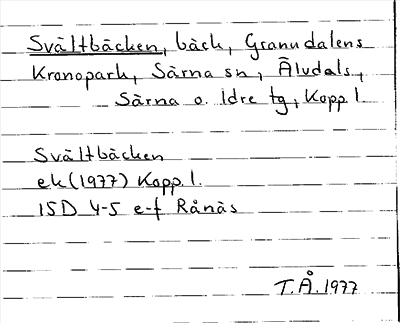 Svältbäcken, bäck, Granudalens
Kronopark, Särna sn, Älvdals,
Särna o. Idre tg, Kopp l.
Svältbäcken
ek (1977) Kopp. l.
15D 4-5 e-f Rånäs
T.Å. 1977